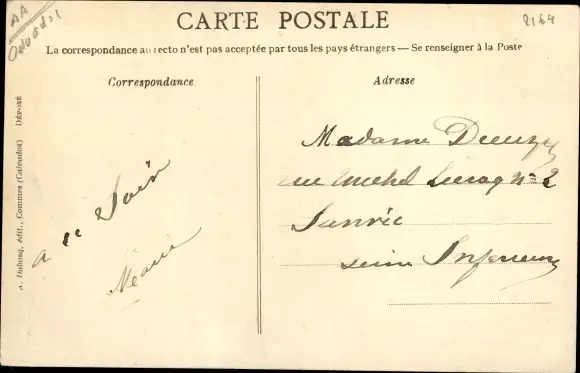 AA
Calvados
2164
CARTE POSTALE
La correspondance au recto n'est pas acceptée par tous les pays étrangers — Se renseigner à la Poste
Correspondance
a ce Soir
Adresse
Madame
rue Michel N= 2
Sanvic
Seine Inferieure
A. Dubosq, édit., Commes (Calvados) DÉPOSÉ